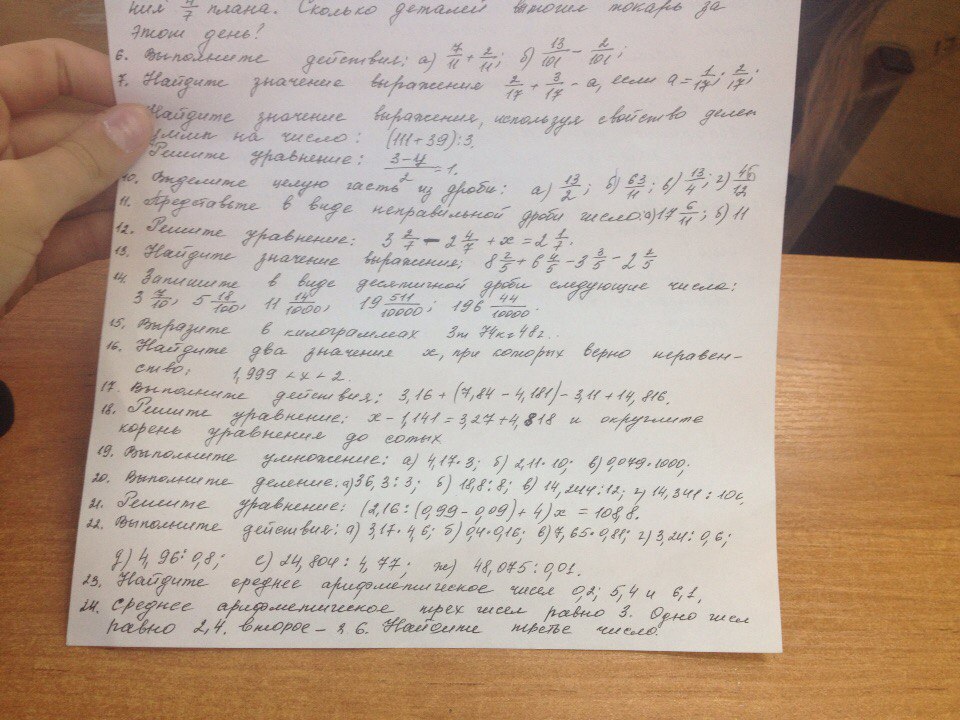 ния 4/7 плана. Сколько деталей выточил токарь за
этот день?
6. Выполните действия: а) 7/11 + 2/11; б) 13/101 - 2/101;
7. Найдите значение выражения 2/17 + 3/17 - а, если а = 1/17; 2/17;
Найдите значение выражения, используя свойство делен
суммы на число: (111+39):3.
Решите уравнение: (3-у)/2 = 1.
10. Выделите целую часть из дроби: а) 13/2; б) 63/11; в) 13/4; г) 46/12
11. Представьте в виде неправильной дроби число: а) 17 6/11; б) 11
12. Решите уравнение: 3 2/7 - 2 4/7 + х = 2 1/7.
13. Найдите значение выражения: 8 2/5 + 6 4/5 - 3 3/5 - 2 2/5
14. Запишите в виде десятичной дроби следующие числа:
3 7/10, 5 18/100, 11 14/1000, 19 511/10000; 196 44/10000.
15. Выразите в килограммах 3т 74кг 48г.
16. Найдите два значения х, при которых верно неравен-
ство: 1,999 < х < 2.
17. Выполните действия: 3,16 + (7,84 - 4,181) - 3,11 + 14,816.
18. Решите уравнение: х - 1,141 = 3,27 + 4,818 и округлите
корень уравнения до сотых
19. Выполните умножение: а) 4,17·3; б) 2,11·10; в) 0,079·1000;
20. Выполните деление: а) 36,3:3; б) 18,8:8; в) 14,244:12; г) 14,341:100,
21. Решите уравнение: (2,16:(0,99-0,09)+4)х = 108,8.
22. Выполните действия: а) 3,17·4,6; б) 0,4·0,16; в) 7,65·0,81; г) 3,24:0,6;
д) 4,96:0,8; е) 24,804:4,77; ж) 48,075:0,01.
23. Найдите среднее арифметическое чисел 0,2; 5,4 и 6,1.
24. Среднее арифметическое трех чисел равно 3. Одно число
равно 2,4. второе - 2 6. Найдите третье число.